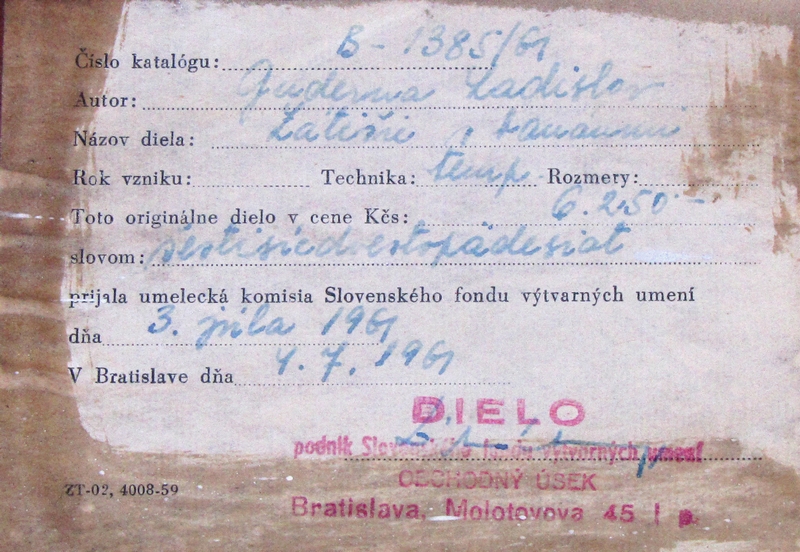 Číslo katalógu: B - 1385/61
Autor: Guderna Ladislav
Názov diela: Zátišie
Rok vzniku: Technika: temp. Rozmery:
Toto originálne dielo v cene Kčs: 6.250 -
slovom: šesťtisícdvestopäťdesiat
prijala umelecká komisia Slovenského fondu výtvarných umení
dňa 3. júla 1961
V Bratislave dňa 4. 7. 1961
DIELO
podnik Slovenského fondu výtvarných umení
OBCHODNÝ ÚSEK
ZT-02, 4008-59
Bratislava, Molotovova 45 I p.